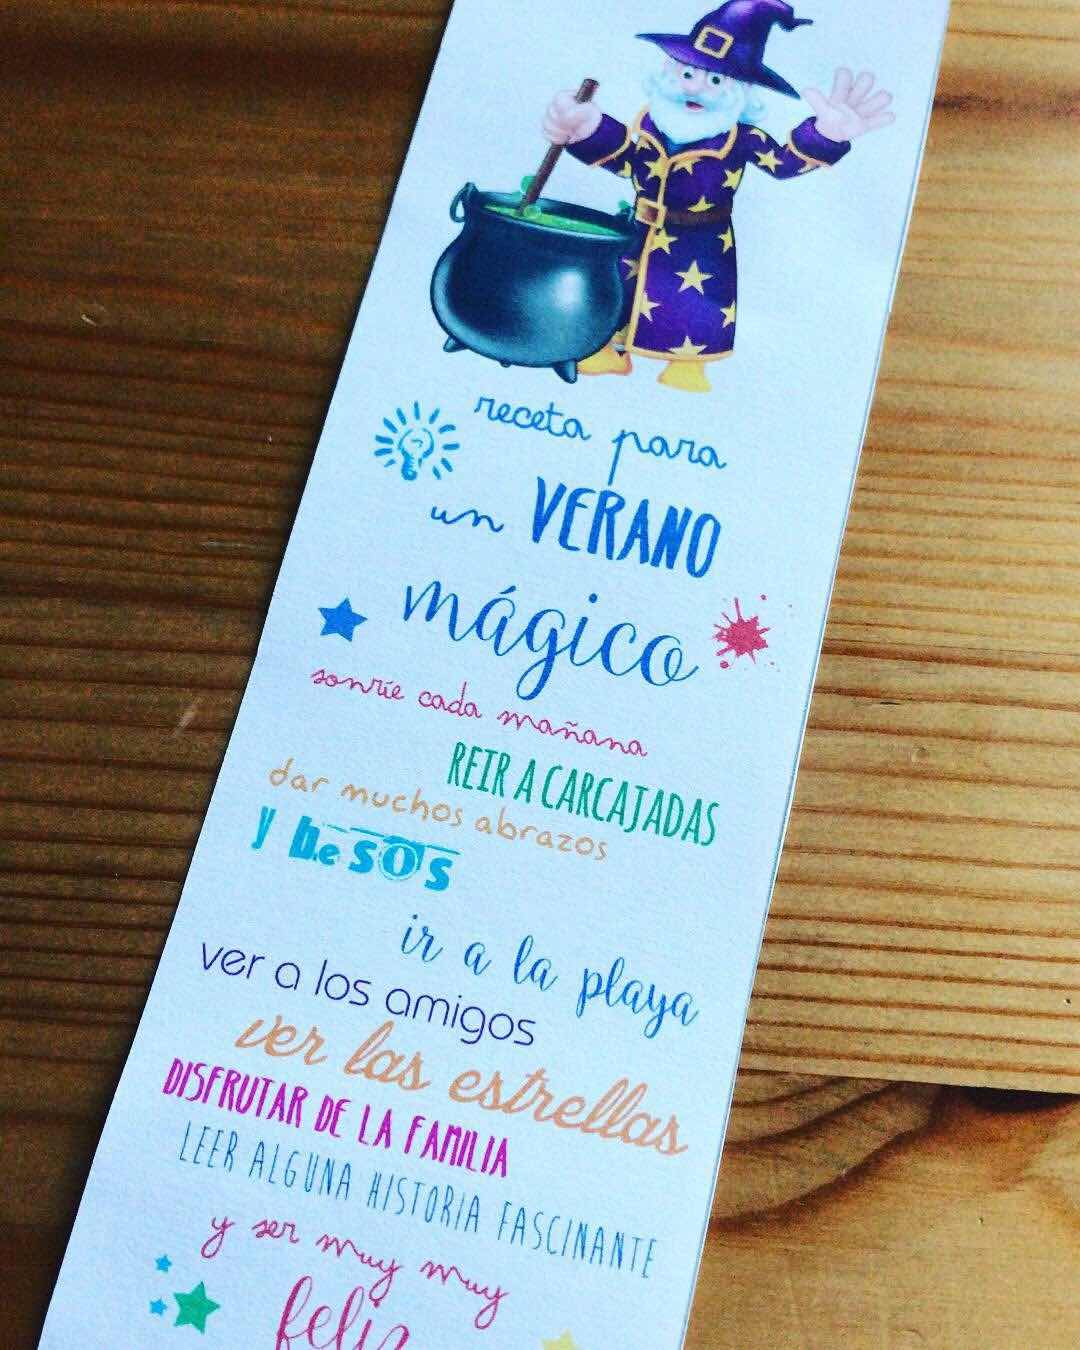 receta para
un VERANO
mágico
sonríe cada mañana
REIR A CARCAJADAS
dar muchos abrazos
y besos
ir a la playa
ver a los amigos
ver las estrellas
DISFRUTAR DE LA FAMILIA
LEER ALGUNA HISTORIA FASCINANTE
y ser muy muy
feliz